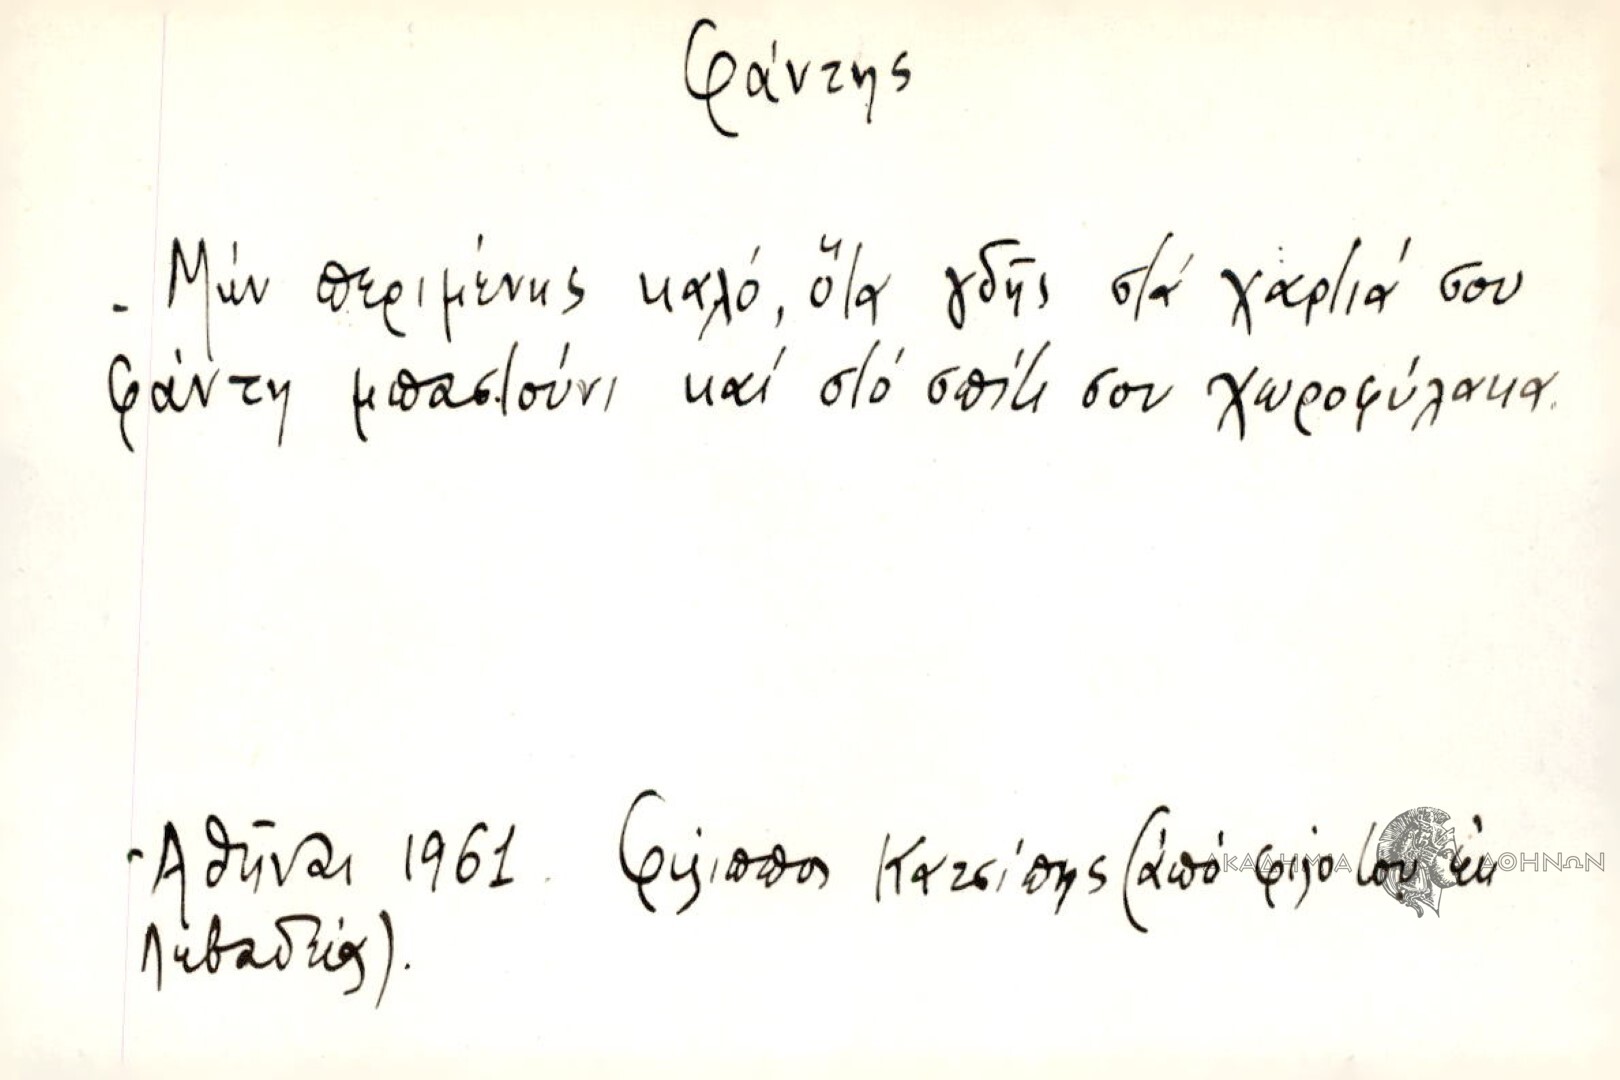 Φάντης
- Μήν περιμένης καλό, ὅτα γδῆς στά χαρτιά σου
φάντη μπαστούνι καί στό σπίτι σου χωροφύλακα.
- Ἀθῆναι 1961. Φίλιππος Κατσίπης (ἀπό φίλο του ἐκ
Λεβαδείας).
ΑΚΑΔΗΜΙΑ ΑΘΗΝΩΝ